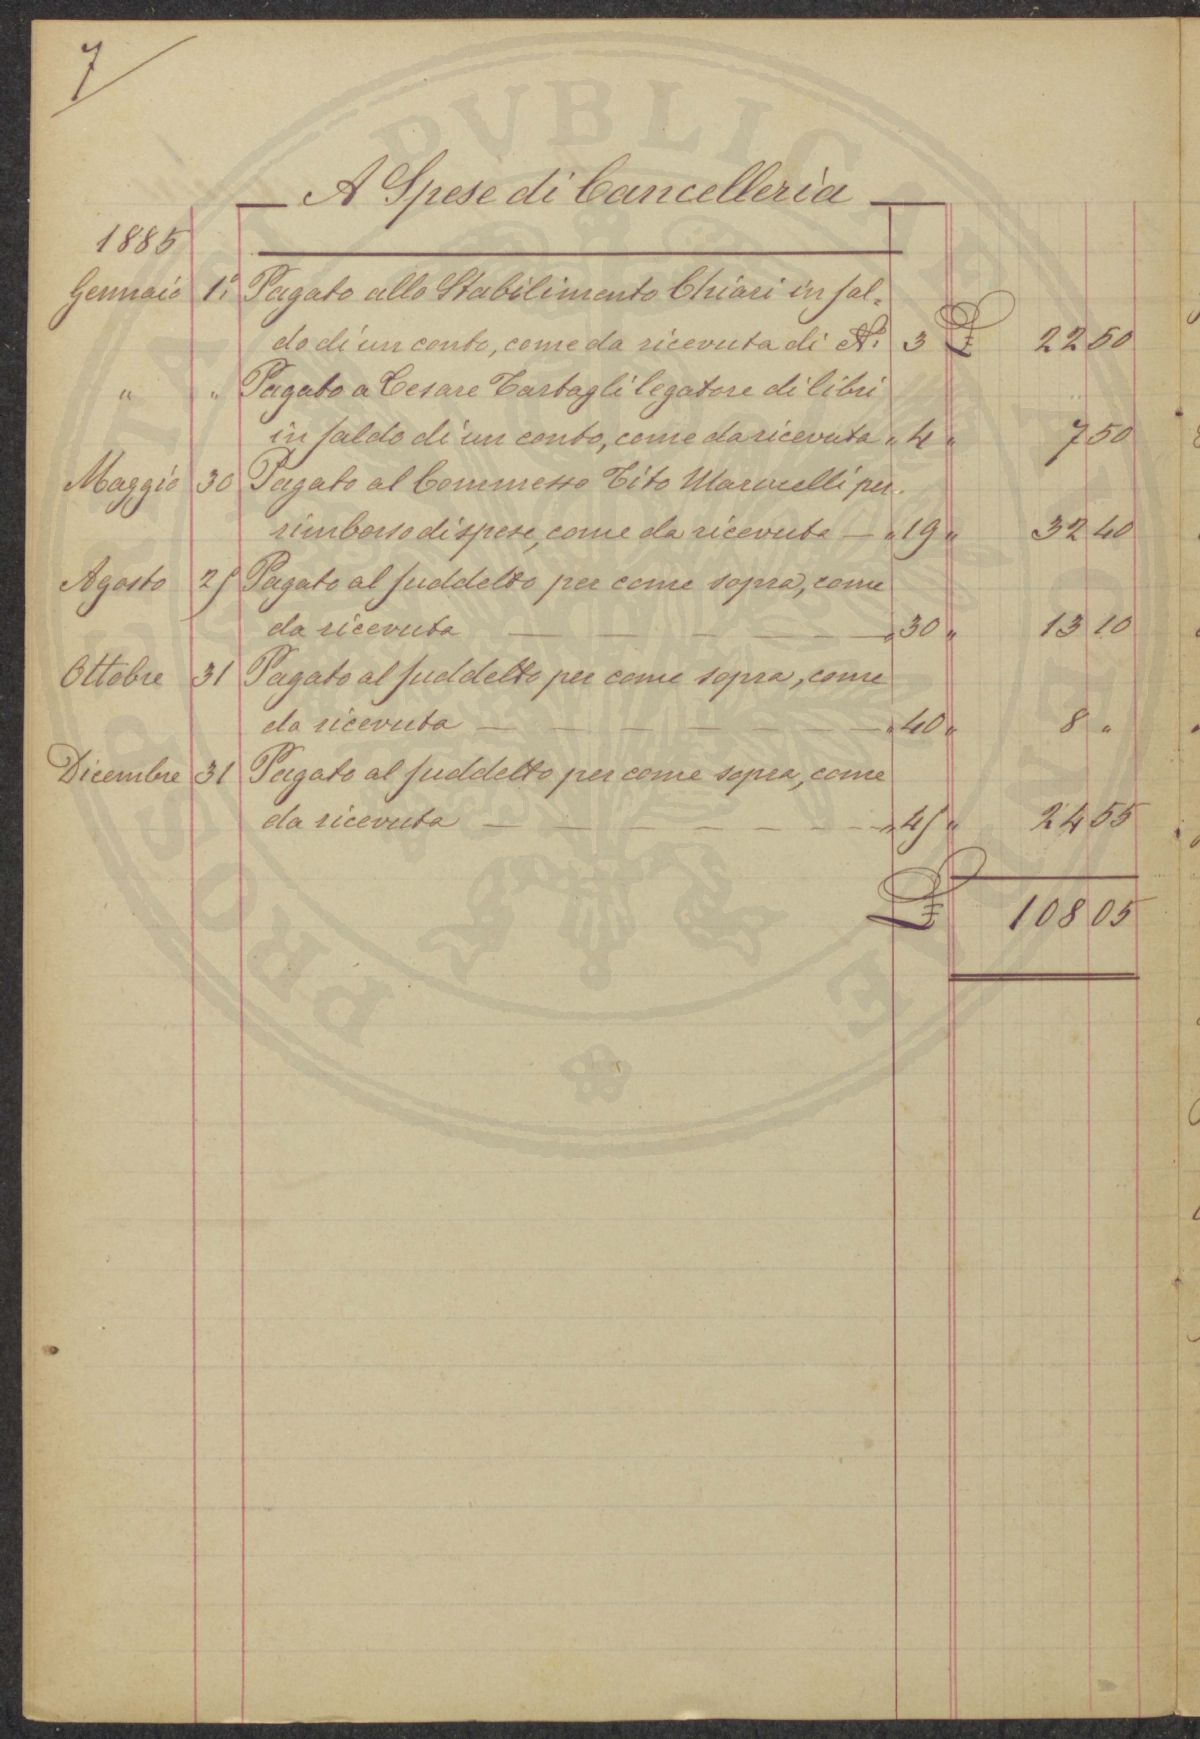 7
A Spese di Cancelleria
1885
Gennaio 1.° Pagato allo Stabilimento Chiari in sal-
do di un conto, come da ricevuta di N.° 3 £ 22 50
" " Pagato a Cesare Tartagli legatore di libri
in saldo di un conto, come da ricevuta " 4 " 7 50
Maggio 30 Pagato al Commesso Tito Marucelli per
rimborso di spese, come da ricevuta — " 19 " 32 40
Agosto 25 Pagato al suddetto per come sopra, come
da ricevuta — — — — — — " 30 " 13 10
Ottobre 31 Pagato al suddetto per come sopra, come
da ricevuta — — — — — — — " 40 " 8 "
Dicembre 31 Pagato al suddetto per come sopra, come
da ricevuta — — — — — — — " 45 " 24 55
£ 108 05